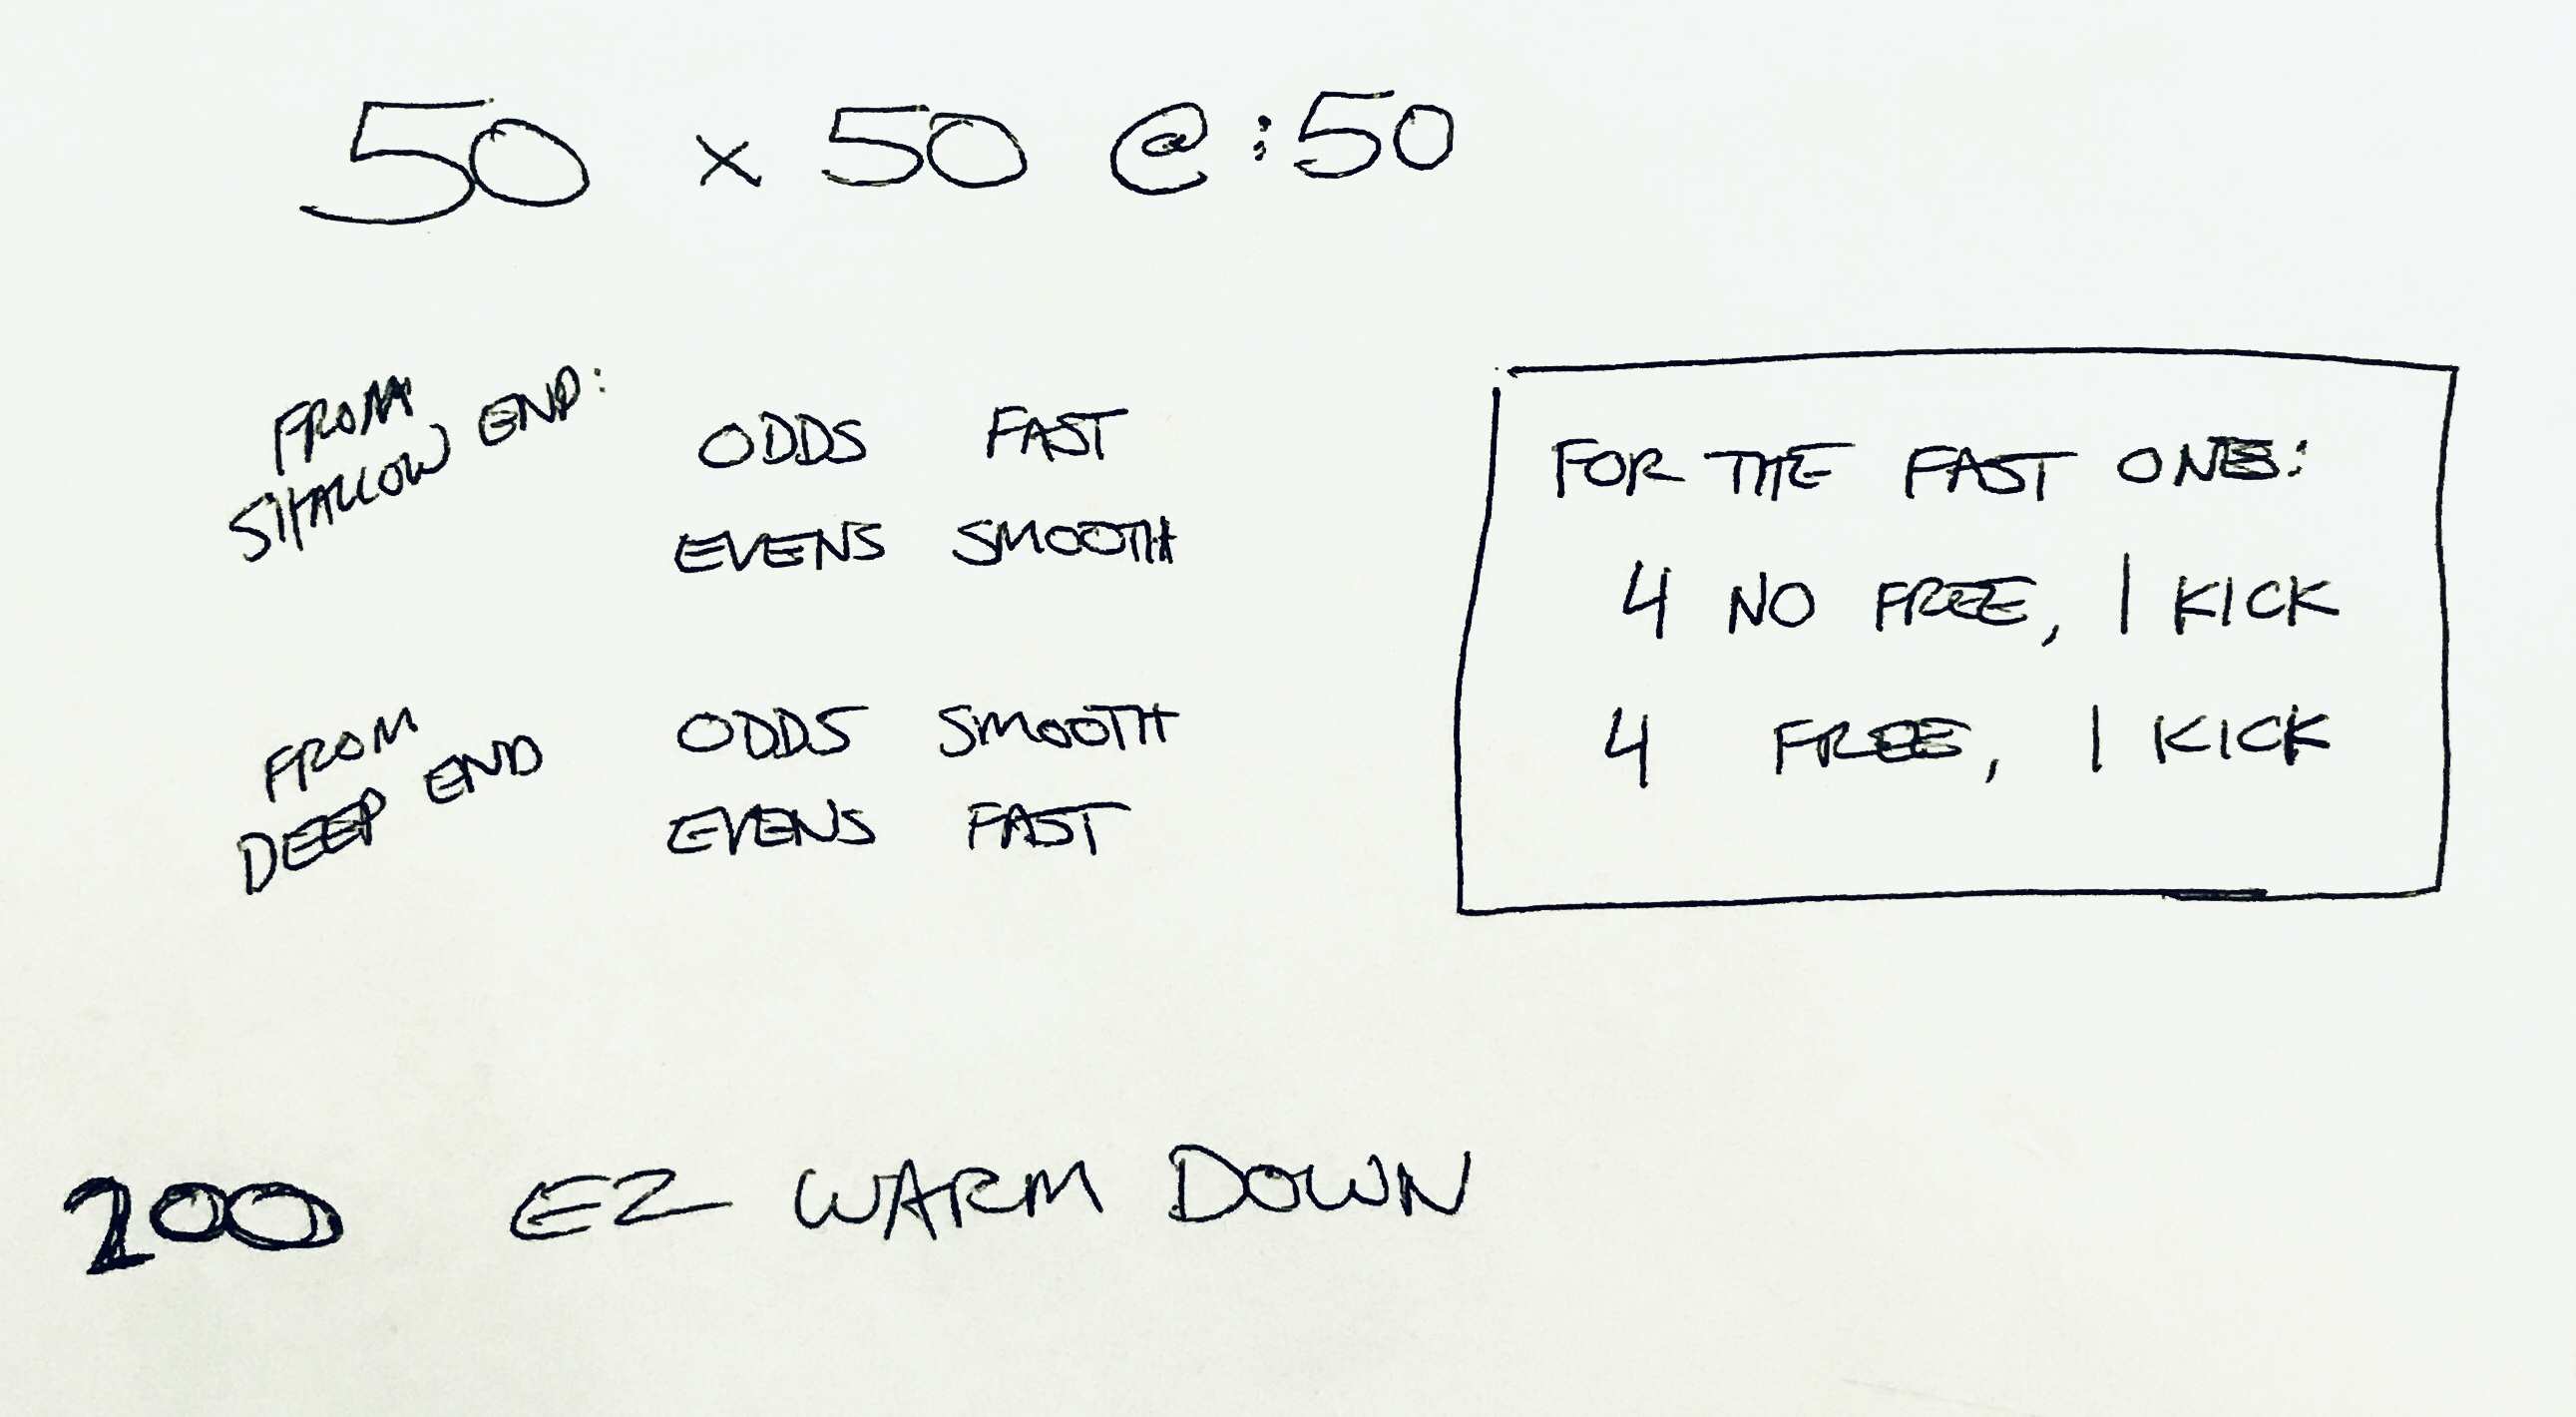 50 x 50 @ :50
FROM
SHALLOW END:
ODDS FAST
EVENS SMOOTH
FROM
DEEP END
ODDS SMOOTH
EVENS FAST
FOR THE FAST ONES:
4 NO FREE, 1 KICK
4 FREE, 1 KICK
200 EZ WARM DOWN